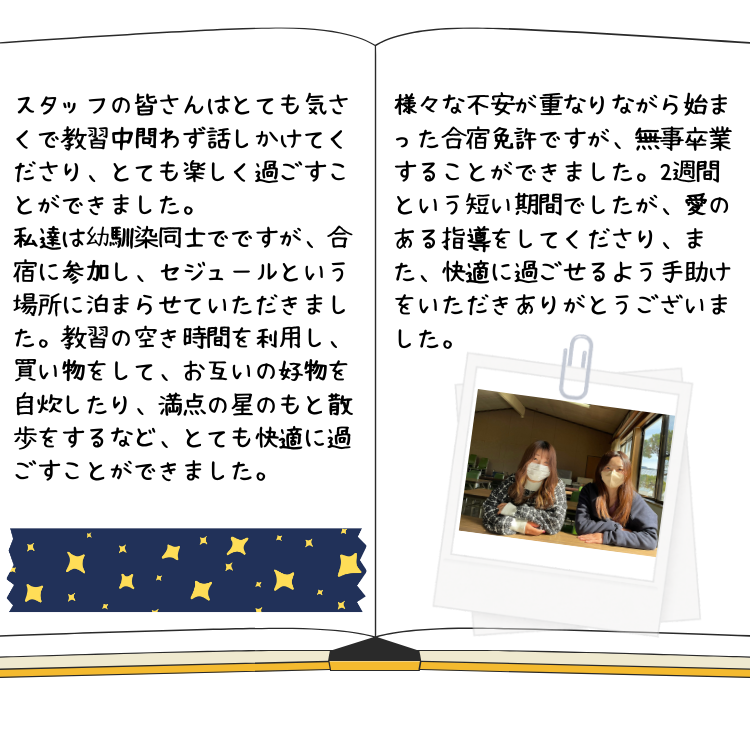 スタッフの皆さんはとても気さ
くで教習中問わず話しかけてく
ださり、とても楽しく過ごすこ
とができました。
私達は幼馴染同士でですが、合
宿に参加し、セジュールという
場所に泊まらせていただきまし
た。教習の空き時間を利用し、
買い物をして、お互いの好物を
自炊したり、満点の星のもと散
歩をするなど、とても快適に過
ごすことができました。
様々な不安が重なりながら始ま
った合宿免許ですが、無事卒業
することができました。2週間
という短い期間でしたが、愛の
ある指導をしてくださり、ま
た、快適に過ごせるよう手助け
をいただきありがとうございま
した。